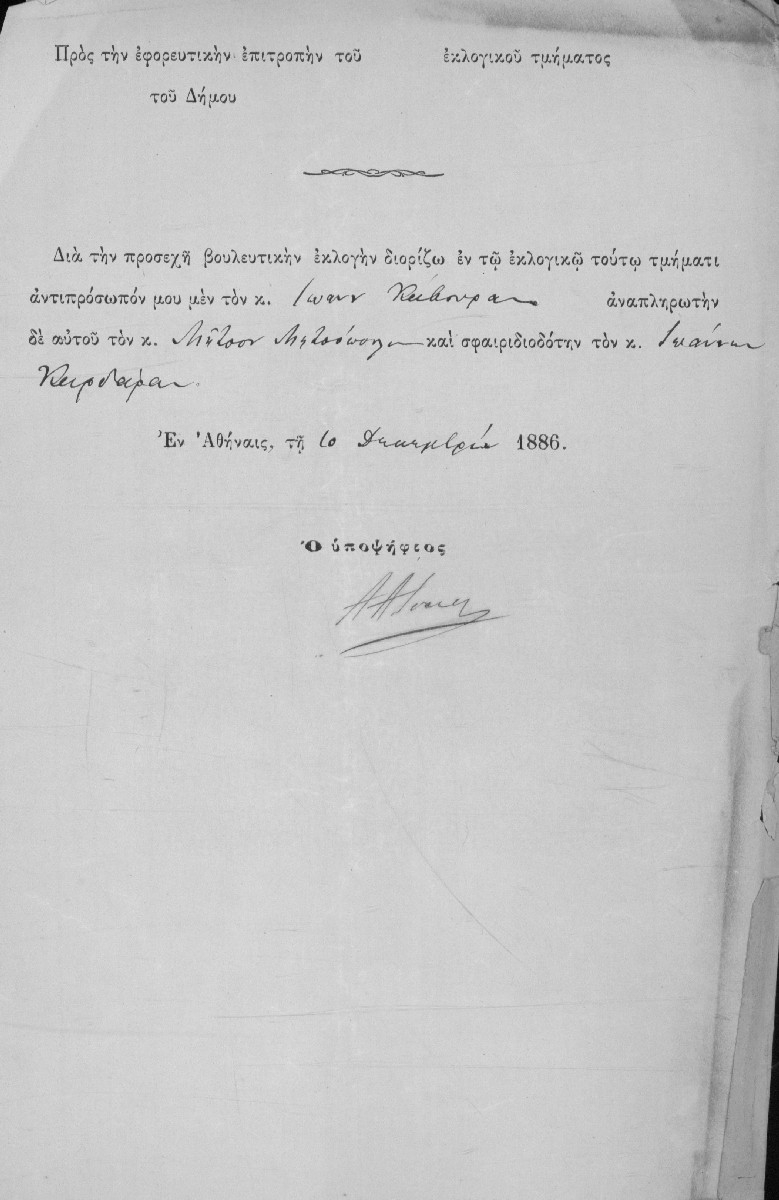 Πρὸς τὴν ἐφορευτικὴν ἐπιτροπὴν τοῦ ἐκλογικοῦ τμήματος
τοῦ Δήμου
Διὰ τὴν προσεχῆ βουλευτικὴν ἐκλογὴν διορίζω ἐν τῷ ἐκλογικῷ τούτῳ τμήματι
ἀντιπρόσωπόν μου μὲν τὸν κ. Ἰωαν ἀναπληρωτὴν
δὲ αὐτοῦ τὸν κ. Μῆτσον καὶ σφαιριδιοδότην τὸν κ. Ἰωάννην
Καρδαρᾶν.
Ἐν Ἀθήναις, τῇ Δεκεμβρίου 1886.
Ὁ ὑποψήφιος